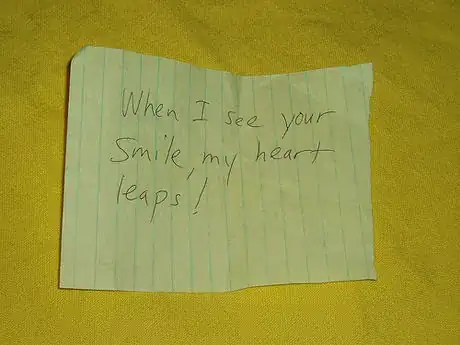 When I see your
Smile, my heart
leaps!